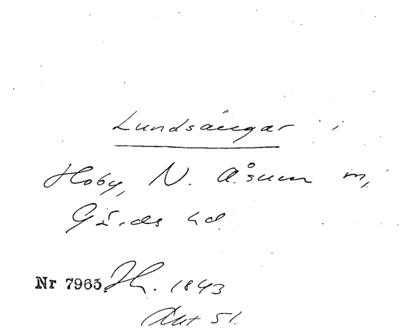 Lundsängar i
Hoby, N. Åsum m,
Gärds hd.
Nr 7965. 1843
Akt 51.